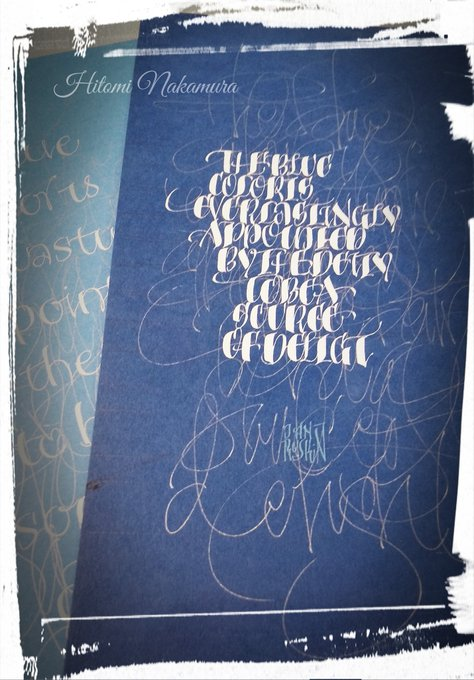 Hitomi Nakamura
THE BLUE
COLOR IS
EVERLASTINGLY
APPOINTED
BY THE DEITY
TO BE A
SOURCE
OF DELIGHT
JOHN
RUSKIN
ue
or is
lastin
point
the
to b
sou